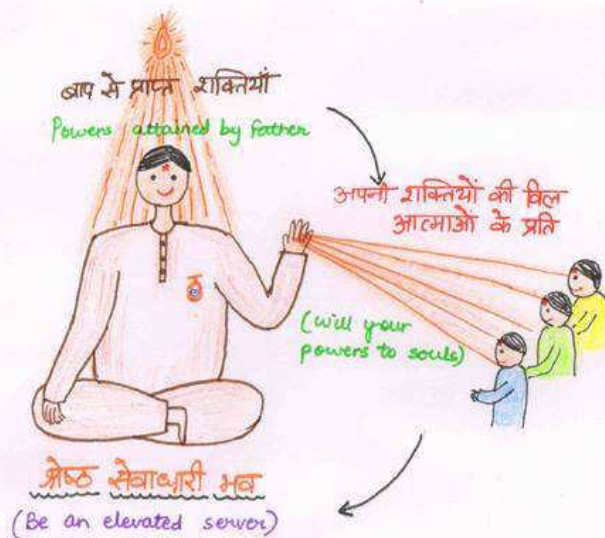 बाप से प्राप्त शक्तियाँ
Powers attained by Father
अपनी शक्तियों की विल
आत्माओ के प्रति
(will your
powers to souls)
श्रेष्ठ सेवाधारी भव
(Be an elevated server)